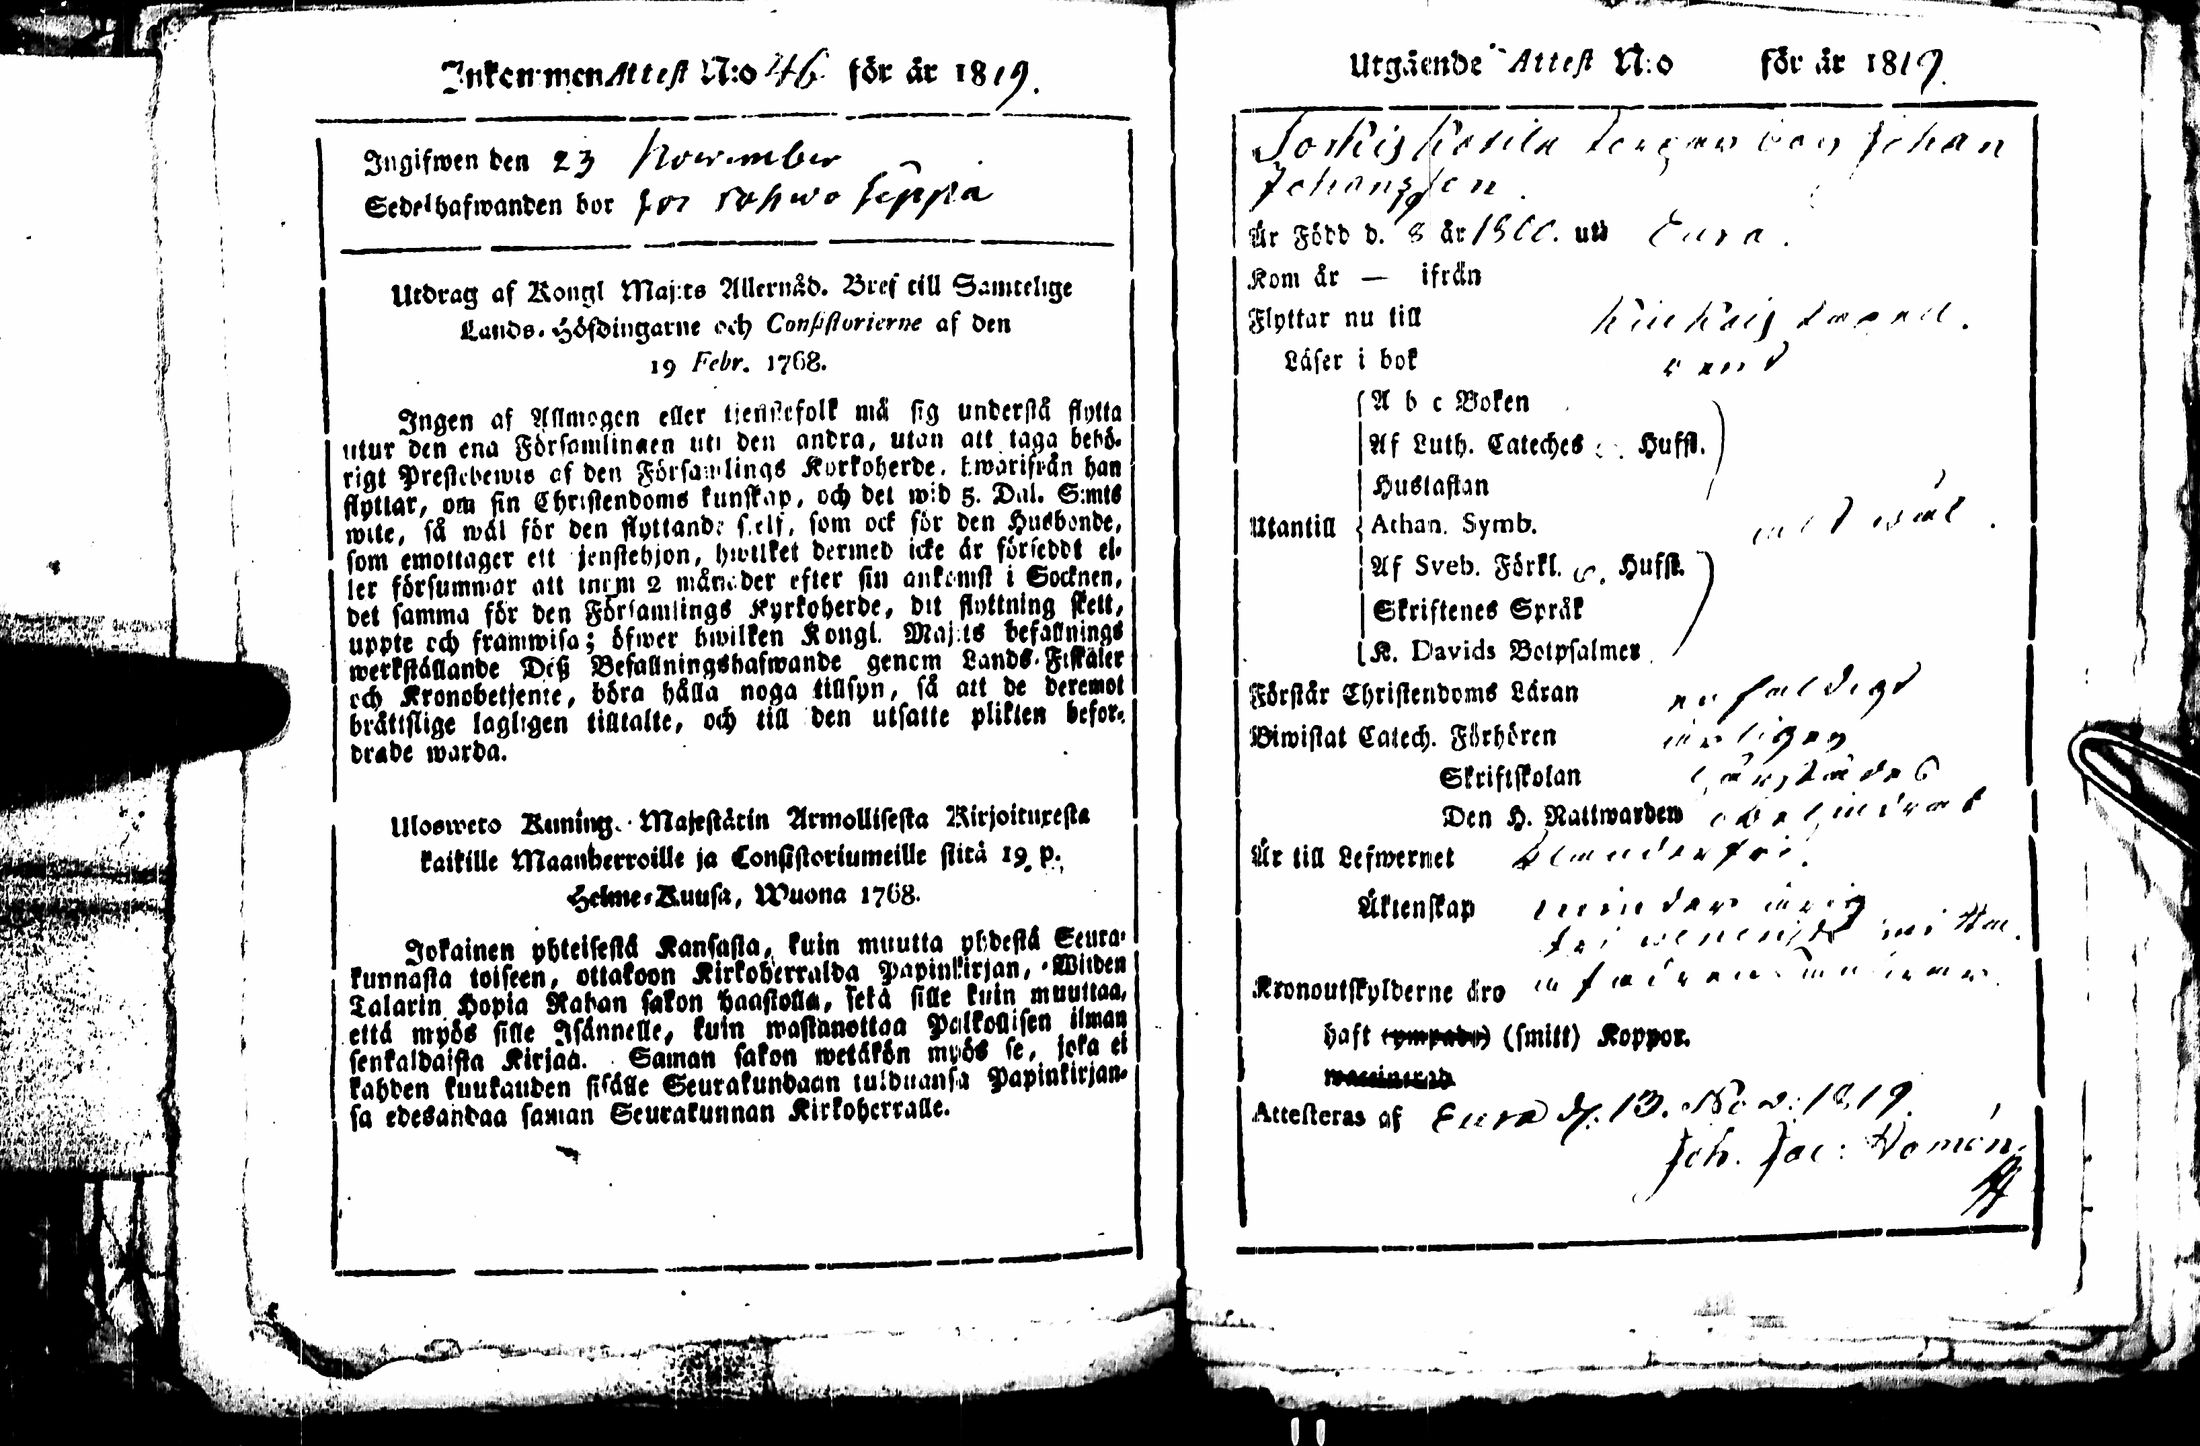 Inkommen Attest N:o 46 för år 1819.
Ingifwen den 23 November
Sedelhafwanden bor hos Seppä
Utdrag af Kongl Maj:ts Allernåd. Bref till Samtelige
Lands-Höfdingarne och Consistorierne af den
19 Febr. 1768.
Ingen af Allmogen eller tjenstefolk må sig understå flytta
utur den ena Församlingen uti den andra, utan att taga behö-
rigt Prestebewis af den Församlings Kyrkoherde, hwarifrån han
flyttar, om sin Christendoms kunskap, och det wid 5. Dal. S:mts
wite, så wäl för den flyttande sjelf, som ock för den Husbonde,
som emottager ett tjenstehjon, hwilket dermed icke är försedt el-
ler försummar att inom 2 månader efter sin ankomst i Socknen,
det samma för den Församlings Kyrkoherde, dit flyttning skett,
uppte och framwisa; öfwer hwilken Kongl. Maj:ts befallnings
werkställande Deß Befallningshafwande genom Lands-Fiskaler
och Kronobetjente, böra hålla noga tillsyn, så att de deremot
bråttslige lagligen tilltalte, och till den utsatte plikten befor-
drade warda.
Ulosweto Kuning. Majestätin Armollisesta Kirjoituxesta
kaikille Maanherroille ja Consistoriumeille siitä 19 p.
Helme-Kuusa, Wuona 1768.
Jokainen yhteisestä Kansasta, kuin muutta yhdestä Seura-
kunnasta toiseen, ottakoon Kirkoherralda Papinkirjan, Wiiden
Talarin Hopia Rahan sakon haastolla, sekä sille kuin muuttaa,
että myös sille Isännelle, kuin wastanottaa Palkollisen ilman
senkaldaista Kirjaa. Saman sakon wetäkön myös se, joka ei
kahden kuukauden sisälle Seurakundaan tulduansa Papinkirjan-
sa edesandaa saman Seurakunnan Kirkoherralle.
Utgående Attest N:o för år 1819.
Johan
Johansson
Är Född d. 8 år 1800. uti Eura.
Kom år — ifrån
Flyttar nu till
Läser i bok rent
A b c Boken
Af Luth. Cateches Husst.
Hustaflan
Utantill Athan. Symb. allt wäl.
Af Sveb. Förkl. Husst.
Skriftenes Språk
K. Davids Botpsalmer
Förstår Christendoms Läran enfaldigt
Biwistat Catech. Förhören årligen
Skriftskolan
Den H. Nattwarden obehindrat
Är till Lefwernet
Äktenskap minderårig
Kronoutskylderne äro
haft (smitt) Koppor.
Attesteras af Eura d. 13. Nov: 1819.
Joh. Jac: